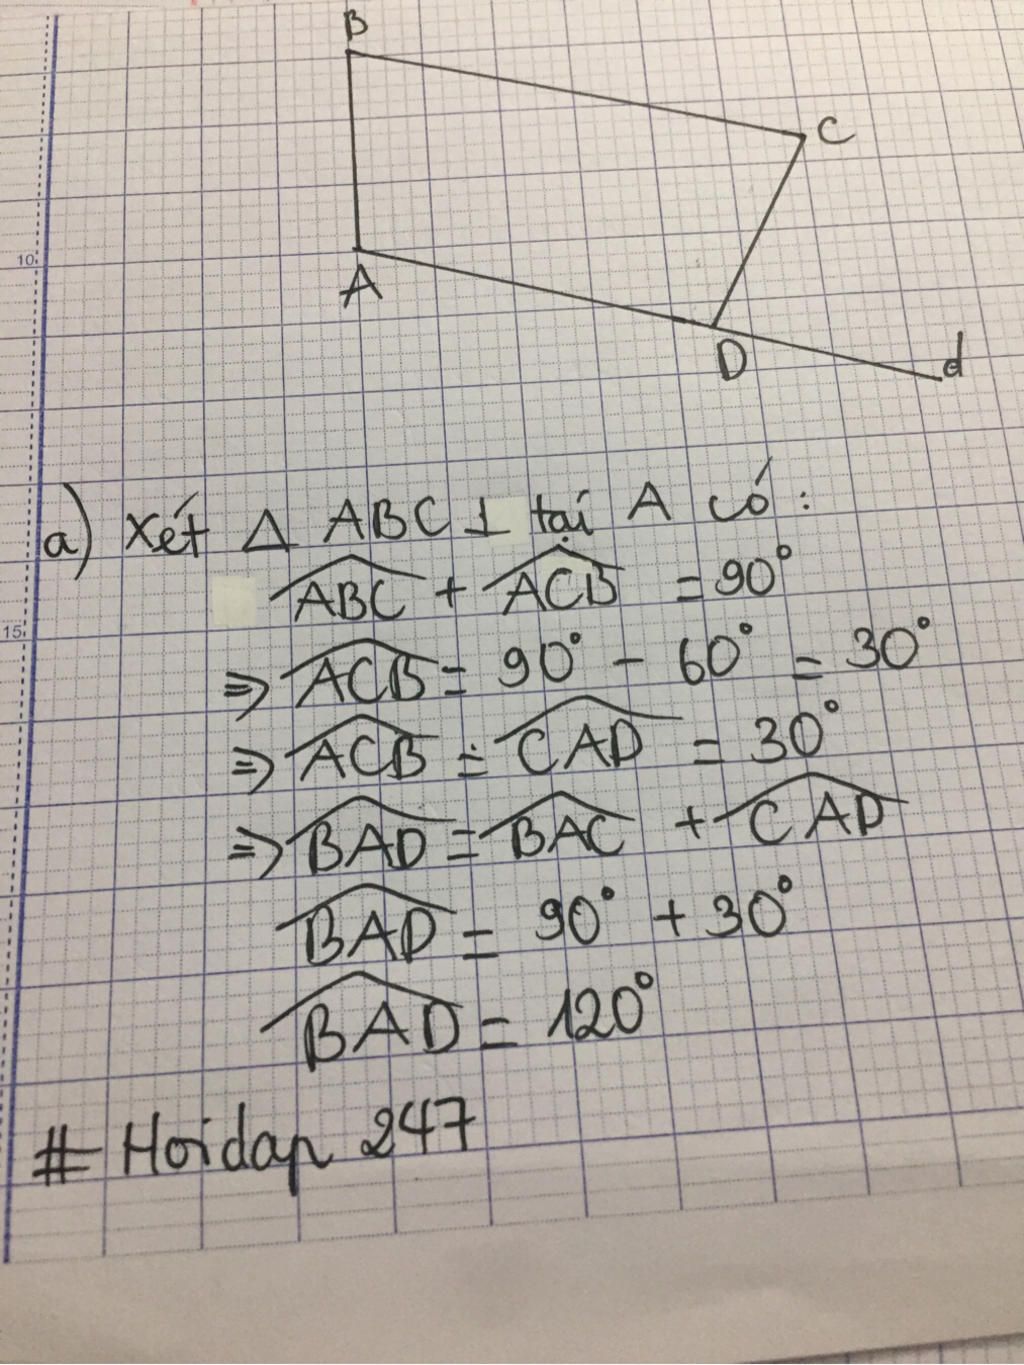 B
C
A
D
d
10
a) Xét Δ ABC ⊥ tại A có:
ABC + ACB = 90°
15
⇒ ACB = 90° - 60° = 30°
⇒ ACB = CAD = 30°
⇒ BAD = BAC + CAD
BAD = 90° + 30°
BAD = 120°
# Hoidap 247